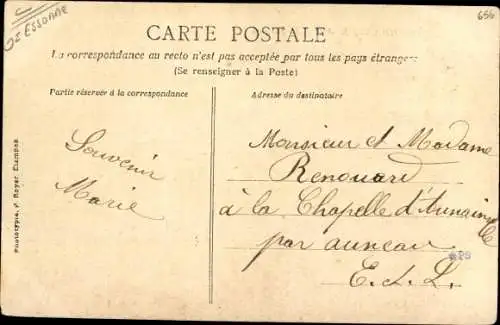 Essonne
656
CARTE POSTALE
La correspondance au recto n'est pas acceptée par tous les pays étrangers
(Se renseigner à la Poste)
Partie réservée à la correspondance
Adresse du destinataire
Souvenir
Marie
Monsieur et Madame
Renouard
à la Chapelle d'Aunainville
par auneau
E. et L.
Phototypie, Royer Étampes